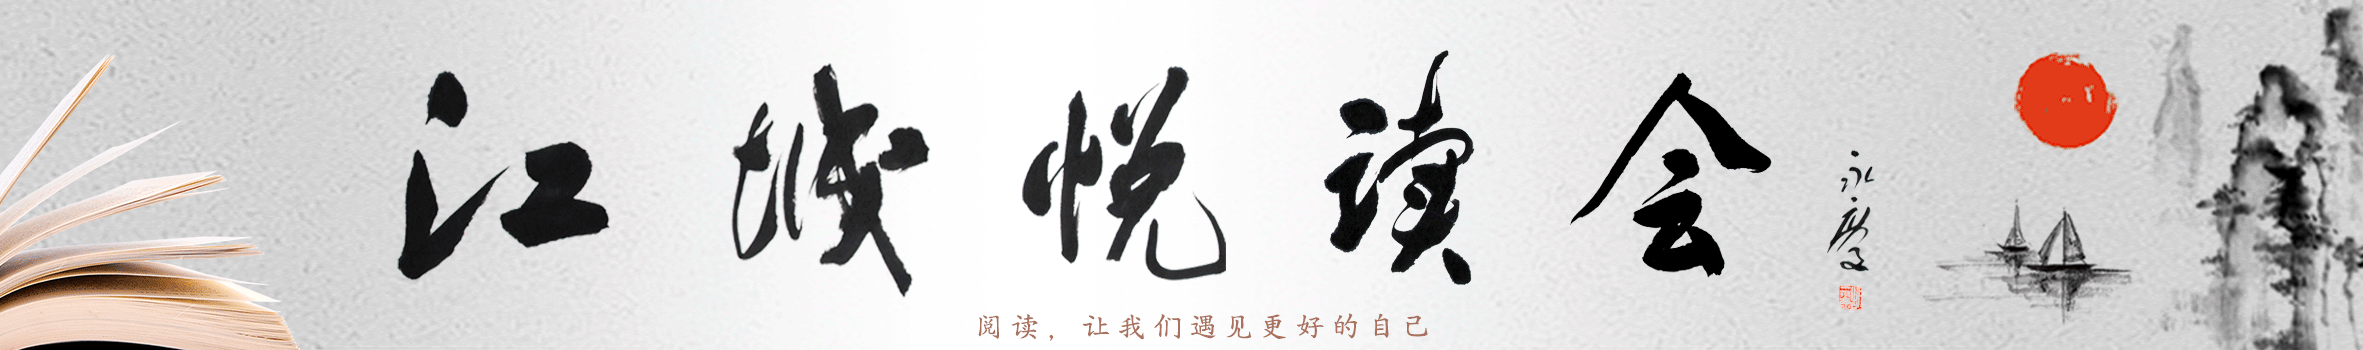 江城悦读会
永庆
阅读，让我们遇见更好的自己